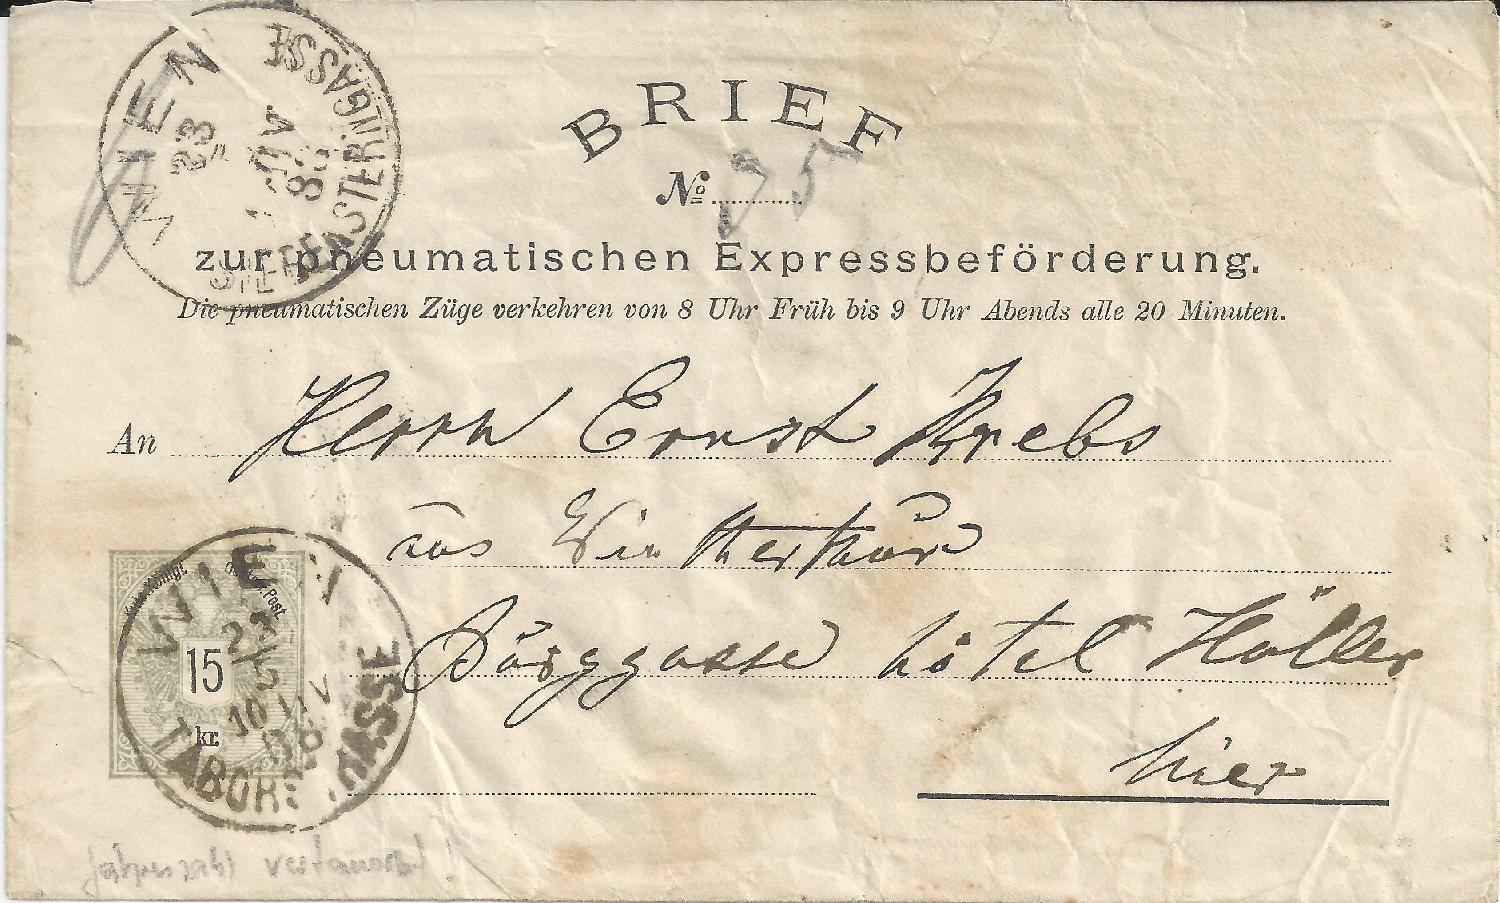 WIEN
23
SIEBENSTERNGASSE
BRIEF
No 75
zur pneumatischen Expressbeförderung.
Die pneumatischen Züge verkehren von 8 Uhr Früh bis 9 Uhr Abends alle 20 Minuten.
An Herrn Ernst Krebs
aus Winterthur
Burggasse hôtel Höller
hier
15
kr.
WIEN
TABORSTRASSE
Jahreszahl vertauscht!